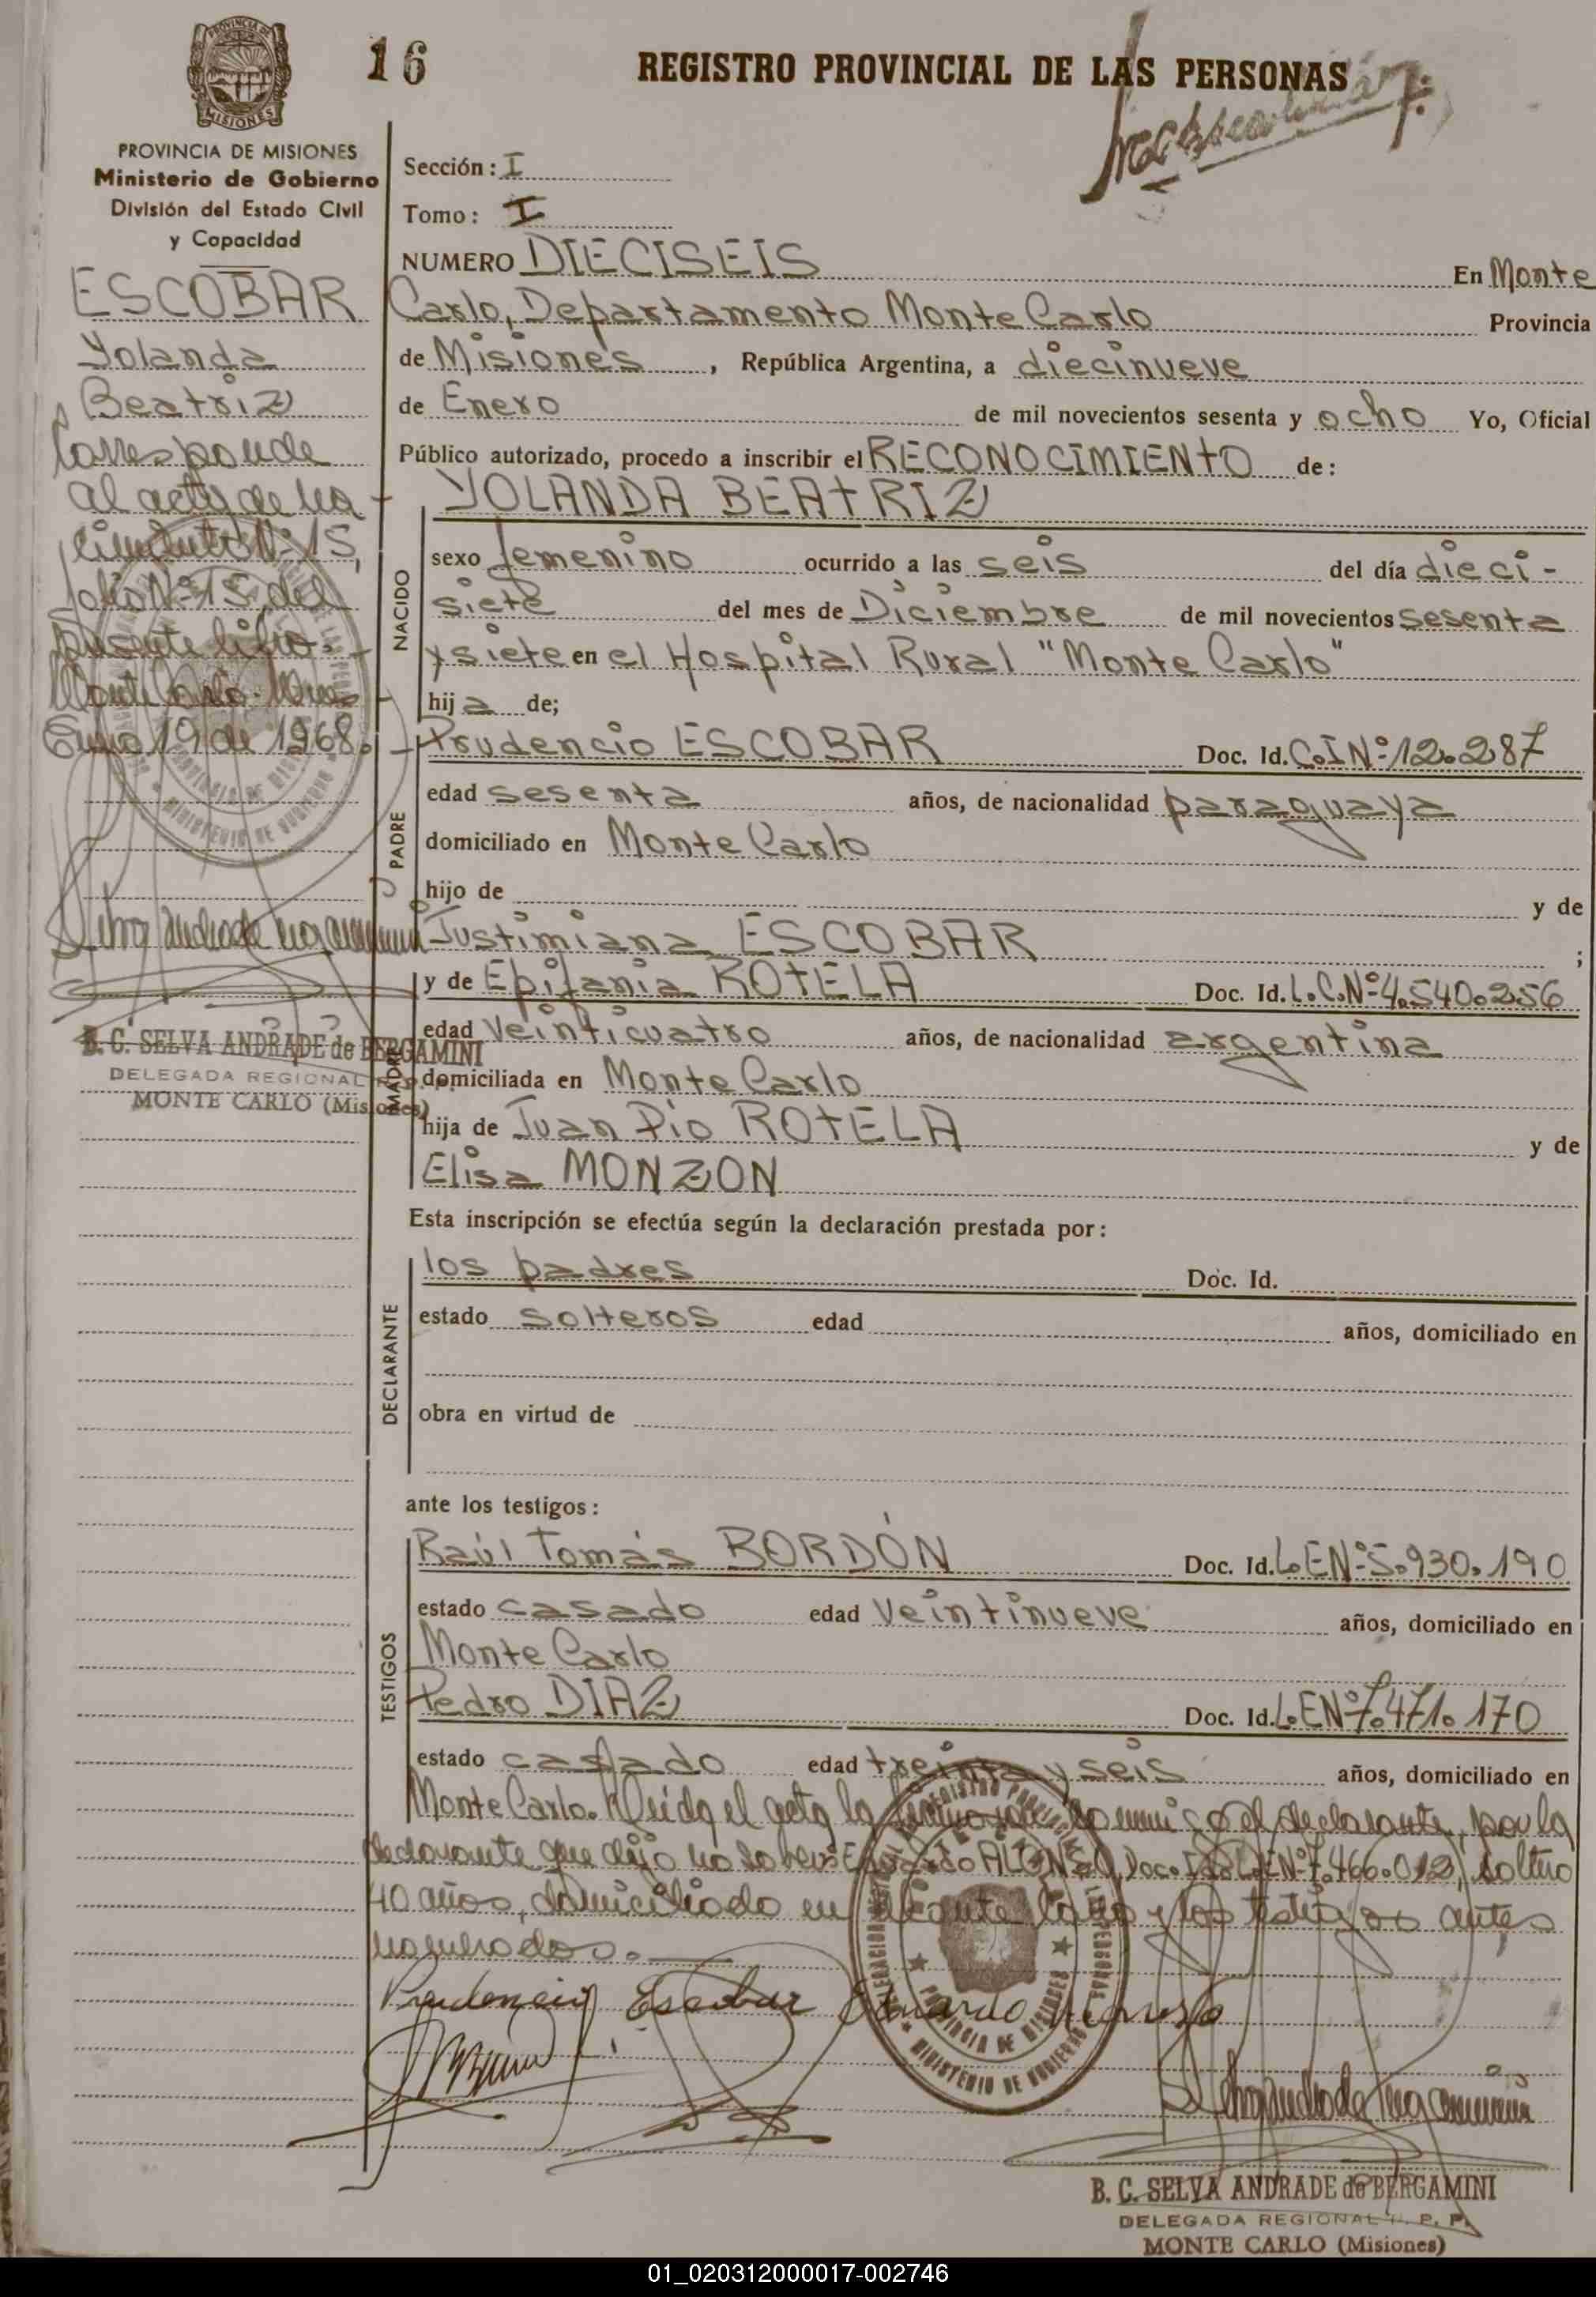 16
REGISTRO PROVINCIAL DE LAS PERSONAS
PROVINCIA DE MISIONES
Ministerio de Gobierno
División del Estado Civil
y Capacidad
ESCOBAR
Yolanda
Beatriz
Corresponde
al acta de na-
cimiento Nº 15,
folio Nº 15, del
presente libro.-
Monte Carlo. Mnes
Enero 19 de 1968.
B. C. SELVA ANDRADE de BERGAMINI
DELEGADA REGIONAL R. P. P.
MONTE CARLO (Misiones)
Sección: I
Tomo: I
NUMERO DIECISEIS En Monte
Carlo, Departamento Monte Carlo Provincia
de Misiones, República Argentina, a diecinueve
de Enero de mil novecientos sesenta y ocho Yo, Oficial
Público autorizado, procedo a inscribir el RECONOCIMIENTO de:
NACIDO
YOLANDA BEATRIZ
sexo femenino ocurrido a las seis del día dieci-
siete del mes de Diciembre de mil novecientos sesenta
y siete en el Hospital Rural "Monte Carlo"
hija de;
PADRE
Prudencio ESCOBAR Doc. Id. C.I Nº 12.287
edad sesenta años, de nacionalidad paraguaya
domiciliado en Monte Carlo
hijo de y de
Justimiana ESCOBAR ;
MADRE
y de Epifania ROTELA Doc. Id. L.C.Nº 4.540.256
edad veinticuatro años, de nacionalidad argentina
domiciliada en Monte Carlo
hija de Juan Pío ROTELA y de
Elisa MONZON
Esta inscripción se efectúa según la declaración prestada por:
DECLARANTE
los padres Doc. Id.
estado solteros edad años, domiciliado en
obra en virtud de
ante los testigos:
TESTIGOS
Raúl Tomás BORDÓN Doc. Id. L.E Nº 5.930.190
estado casado edad veintinueve años, domiciliado en
Monte Carlo
Pedro DIAZ Doc. Id. L.E Nº 7.471.170
estado casado edad treinta y seis años, domiciliado en
Monte Carlo. Leída el acta la firman conmigo el declarante, por la
declarante que dijo no saber Eduardo ALONSO, Doc. Id. L.E Nº 7.466.012, soltero
40 años, domiciliado en Monte Carlo y los testigos antes
nombrados.
Prudencio Escobar Eduardo Alonso
B. C. SELVA ANDRADE de BERGAMINI
DELEGADA REGIONAL R. P. P.
MONTE CARLO (Misiones)
01_020312000017-002746